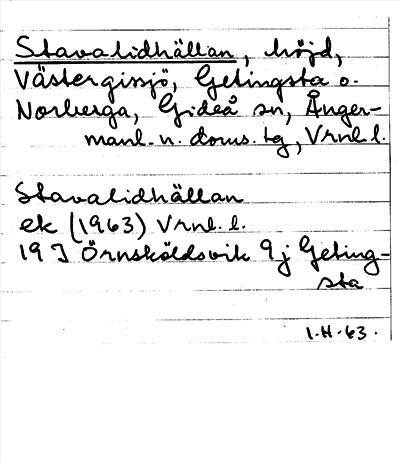 Stavalidhällan, höjd,
Västergissjö, Getingsta o.
Norberga, Gideå sn, Ånger-
manl. n. doms. tg, Vrnl. l.
Stavalidhällan
ek (1963) Vrnl. l.
19 I Örnsköldsvik 9j Geting-
sta
I.H.63.